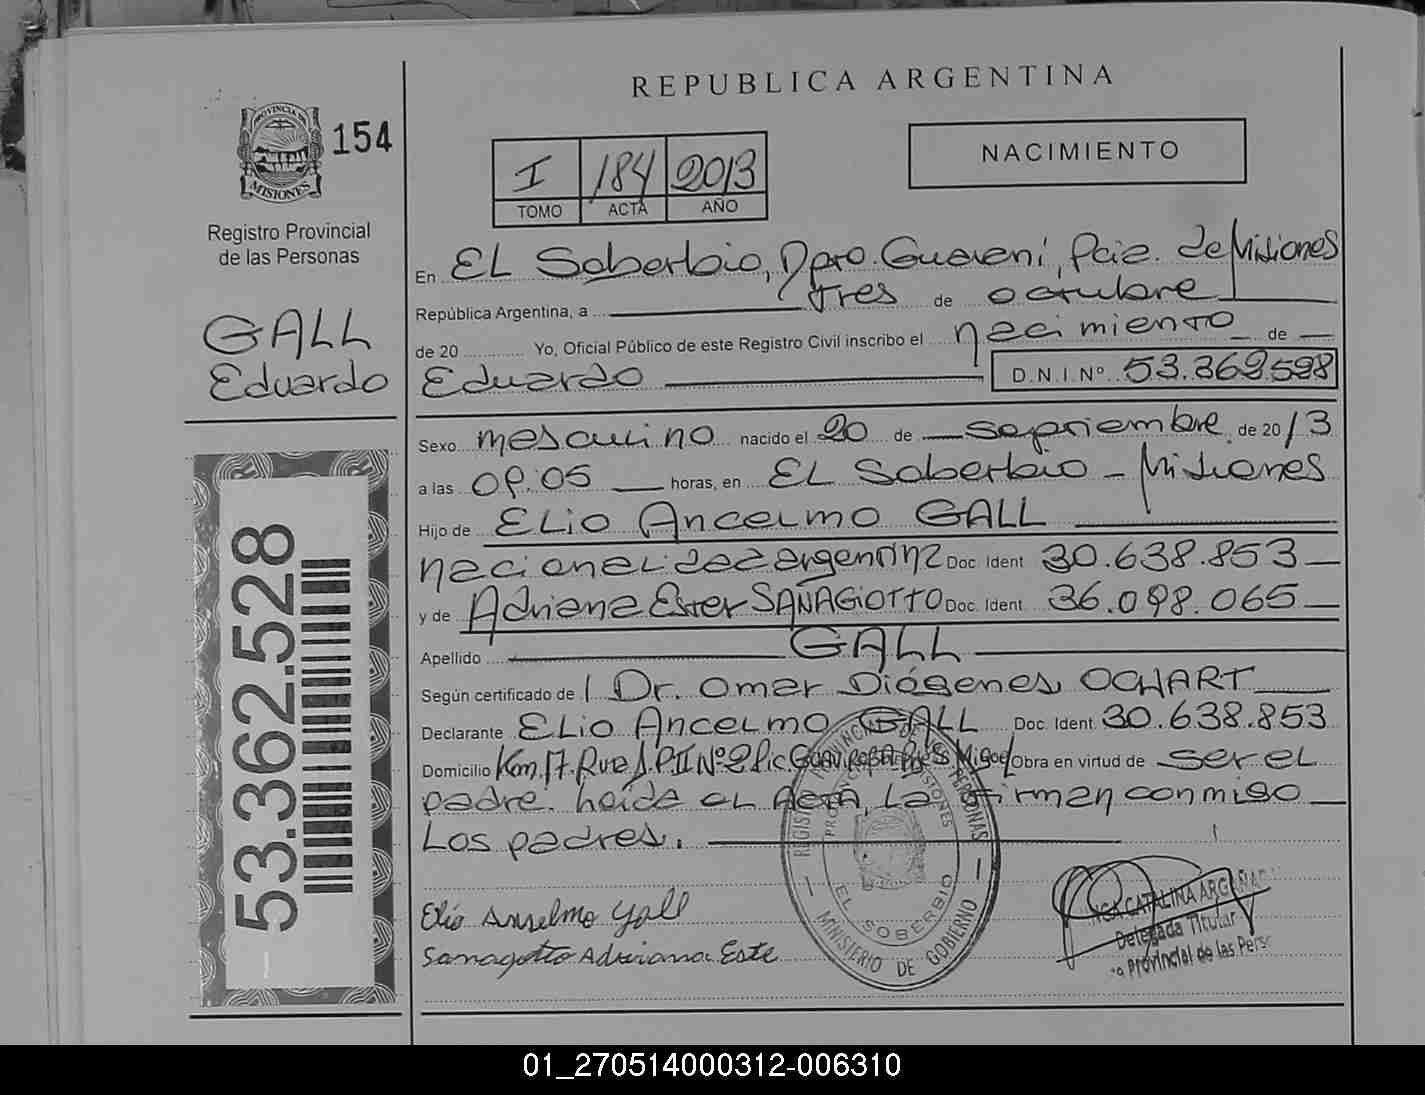 REPUBLICA ARGENTINA
PROVINCIA DE
MISIONES
154
I 184 2013
TOMO ACTA AÑO
NACIMIENTO
Registro Provincial
de las Personas
GALL
Eduardo
53.362.528
En EL Soberbio, Dpto. Guaraní, Pcia. de Misiones
República Argentina, a tres de octubre
de 20 Yo, Oficial Público de este Registro Civil inscribo el nacimiento de
Eduardo D.N.I.Nº 53.362.528
Sexo masculino nacido el 20 de septiembre de 2013
a las 09:05 horas, en EL Soberbio - Misiones
Hijo de ELio Ancelmo GALL
nacionalidad argentina Doc. Ident 30.638.853
y de Adriana Ester SANAGIOTTO Doc. Ident. 36.098.065
Apellido GALL
Según certificado de Dr. Omar Diógenes OCHART
Declarante ELio Ancelmo GALL Doc. Ident. 30.638.853
Domicilio Km.17. Ruta J.P.II Nº2 Pic. Miguel Obra en virtud de ser el
padre. Leída el Acta, La firman conmigo
Los padres.
Elio Anselmo Gall
Sanagiotto Adriana Este
REGISTRO PROVINCIAL DE LAS PERSONAS
PROVINCIA DE MISIONES
EL SOBERBIO
MINISTERIO DE GOBIERNO
CATALINA
Delegada Titular
Provincial de las Pers
01_270514000312-006310